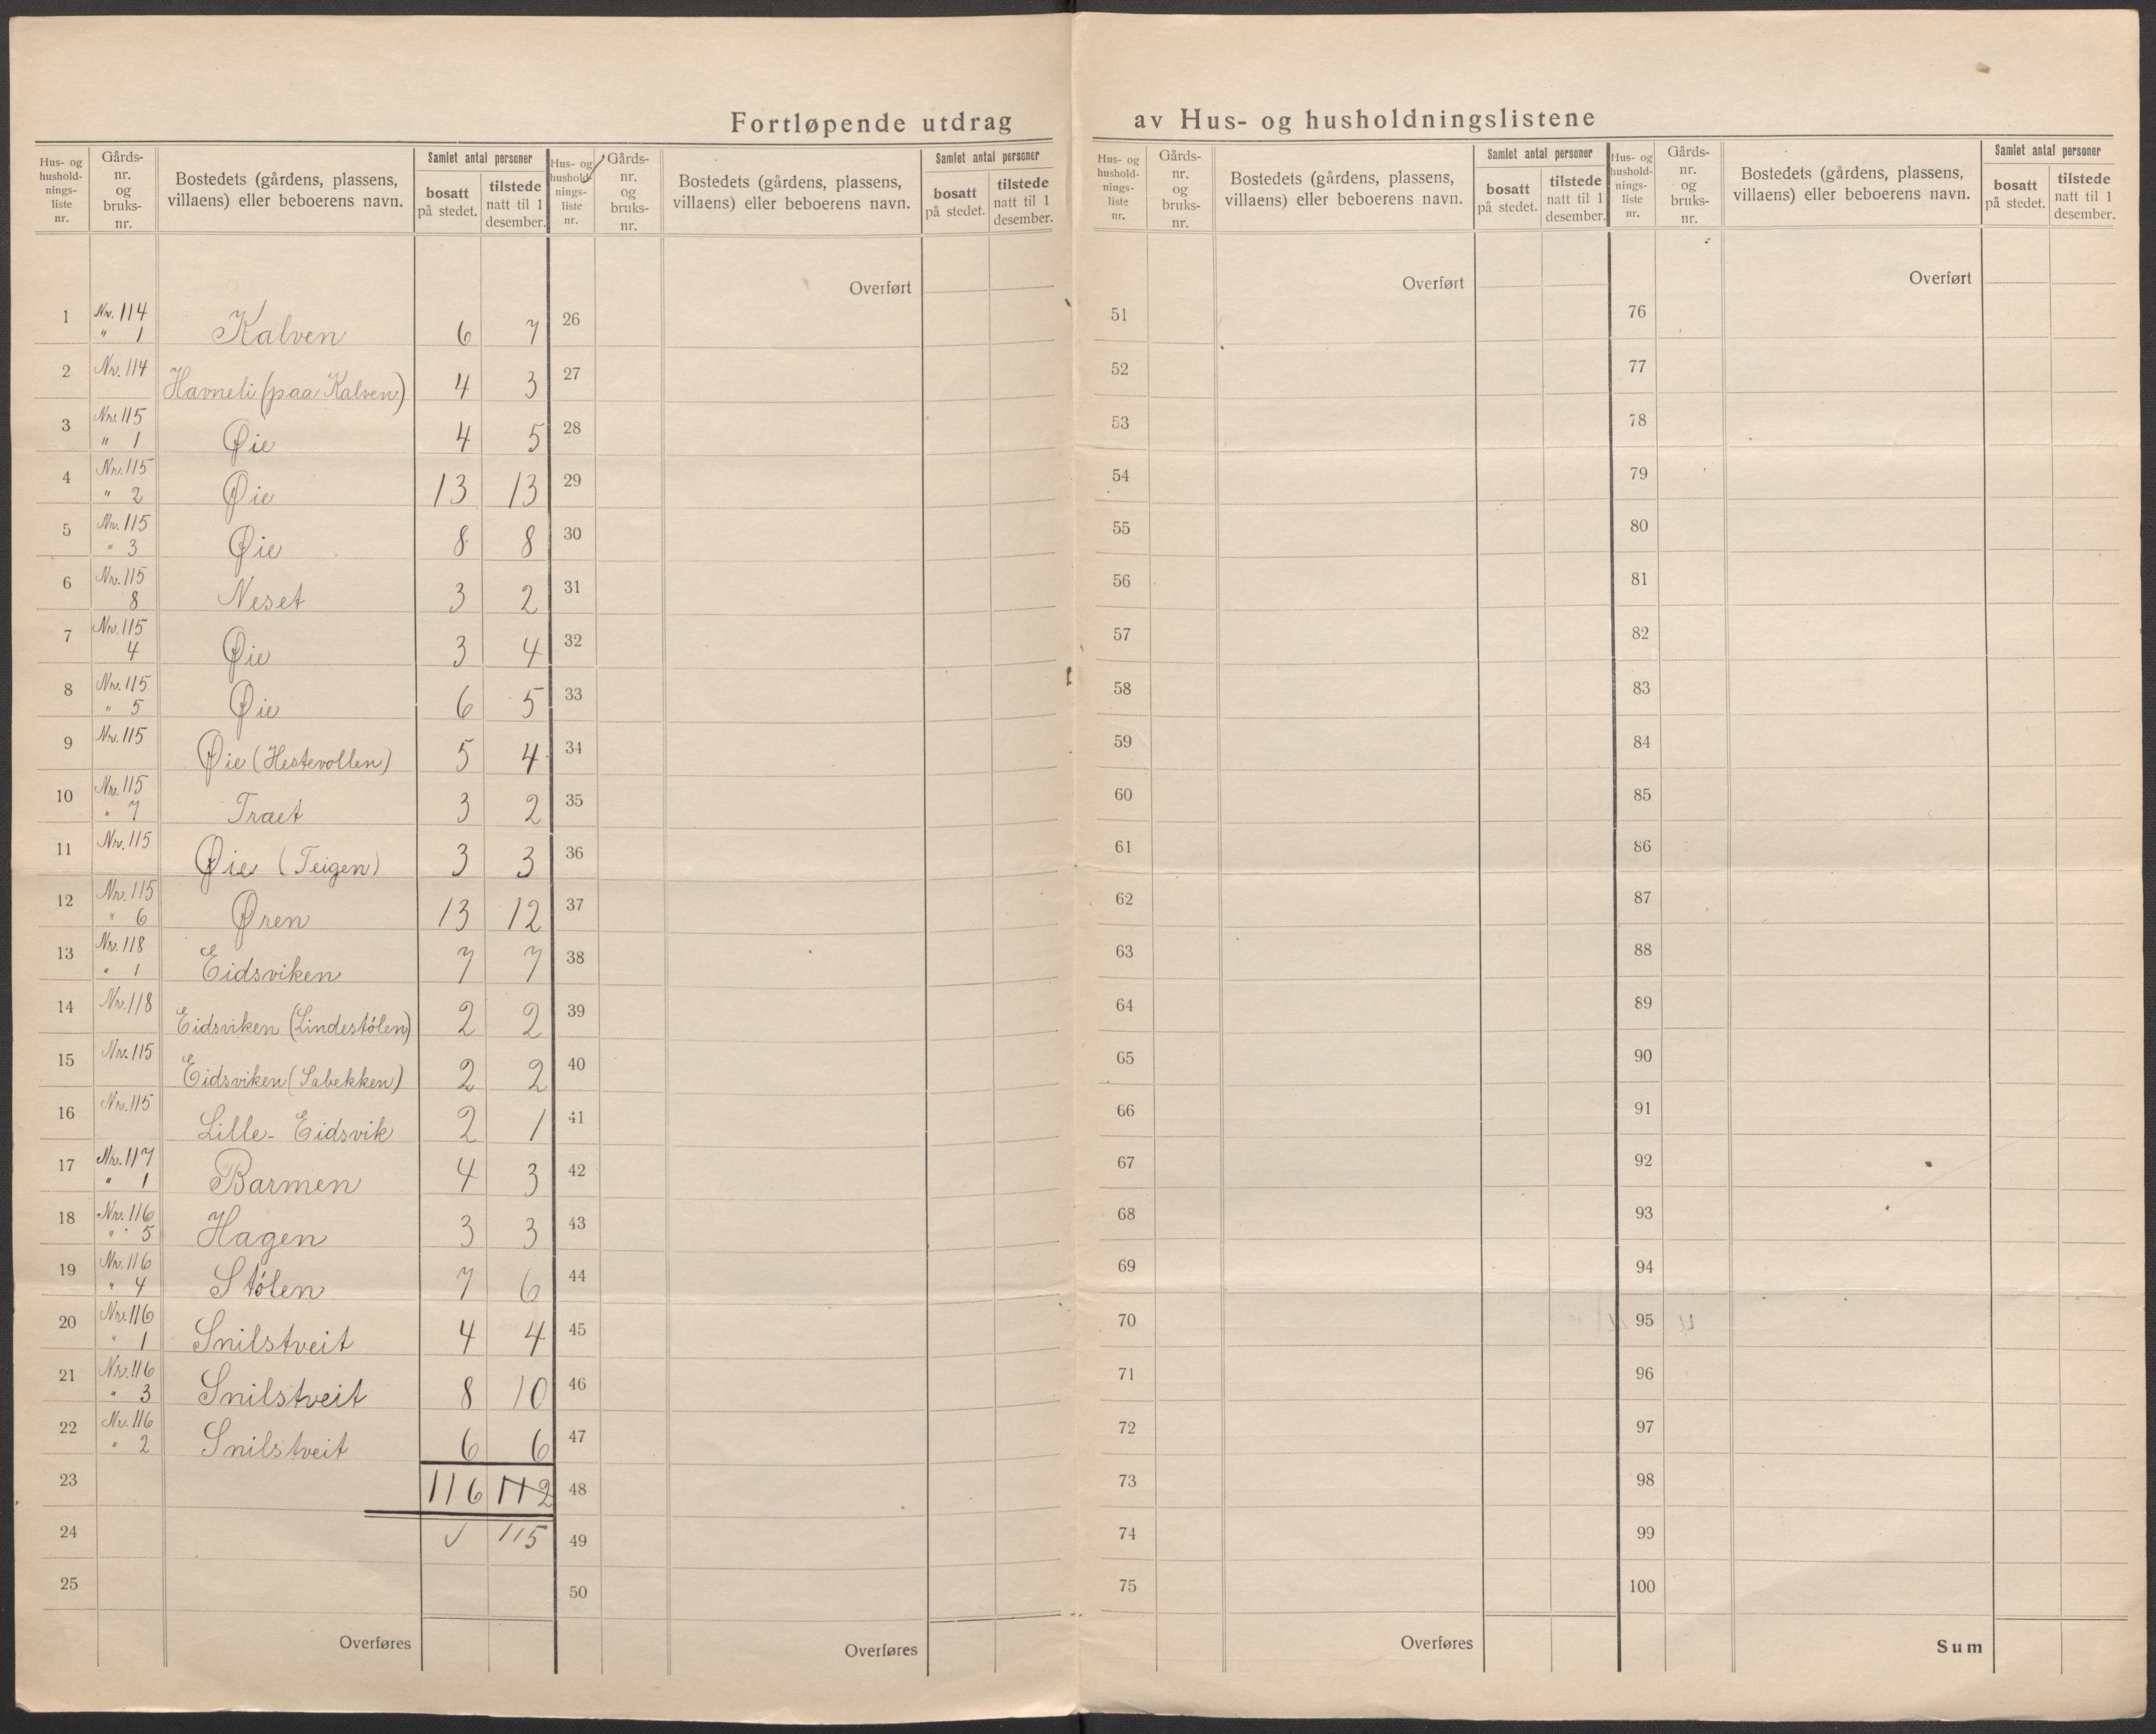 Fortløpende utdrag av Hus- og husholdningslistene
Hus- og hushold-nings-liste nr. | Gårds-nr. og bruks-nr. | Bostedets (gårdens, plassens, villaens) eller beboerens navn. | Samlet antal personer | bosatt på stedet. | tilstede natt til 1 desember.
Hus- og hushold-nings-liste nr. | Gårds-nr. og bruks-nr. | Bostedets (gårdens, plassens, villaens) eller beboerens navn. | Samlet antal personer | bosatt på stedet. | tilstede natt til 1 desember.
Hus- og hushold-nings-liste nr. | Gårds-nr. og bruks-nr. | Bostedets (gårdens, plassens, villaens) eller beboerens navn. | Samlet antal personer | bosatt på stedet. | tilstede natt til 1 desember.
Hus- og hushold-nings-liste nr. | Gårds-nr. og bruks-nr. | Bostedets (gårdens, plassens, villaens) eller beboerens navn. | Samlet antal personer | bosatt på stedet. | tilstede natt til 1 desember.
1 Nr. 114 " 1 Kalven 6 7
2 Nr. 114 Havneli (paa Kalven) 4 3
3 Nr. 115 " 1 Øie 4 5
4 Nr. 115 " 2 Øie 13 13
5 Nr. 115 " 3 Øie 8 8
6 Nr. 115 8 Neset 3 2
7 Nr. 115 4 Øie 3 4
8 Nr. 115 " 5 Øie 6 5
9 Nr. 115 Øie (Hestevollen) 5 4
10 Nr. 115 " 7 Traet 3 2
11 Nr. 115 Øie (Teigen) 3 3
12 Nr. 115 " 6 Øren 13 12
13 Nr. 118 " 1 Eidsviken 7 7
14 Nr. 118 Eidsviken (Lindestólen) 2 2
15 Nr. 115 Eidsviken (Sabekken) 2 2
16 Nr. 115 Lille- Eidsvik 2 1
17 Nr. 117 " 1 Barmen 4 3
18 Nr. 116 " 5 Hagen 3 3
19 Nr. 116 " 4 Stólen 7 6
20 Nr. 116 " 1 Snilstveit 4 4
21 Nr. 116 " 3 Snilstveit 8 10
22 Nr. 116 " 2 Snilstveit 6 6
23 116 112
24 115
25
Overføres
Overført
26
27
28
29
30
31
32
33
34
35
36
37
38
39
40
41
42
43
44
45
46
47
48
49
50
Overføres
Overført
51
52
53
54
55
56
57
58
59
60
61
62
63
64
65
66
67
68
69
70
71
72
73
74
75
Overføres
Overført
76
77
78
79
80
81
82
83
84
85
86
87
88
89
90
91
92
93
94
95
96
97
98
99
100
Sum